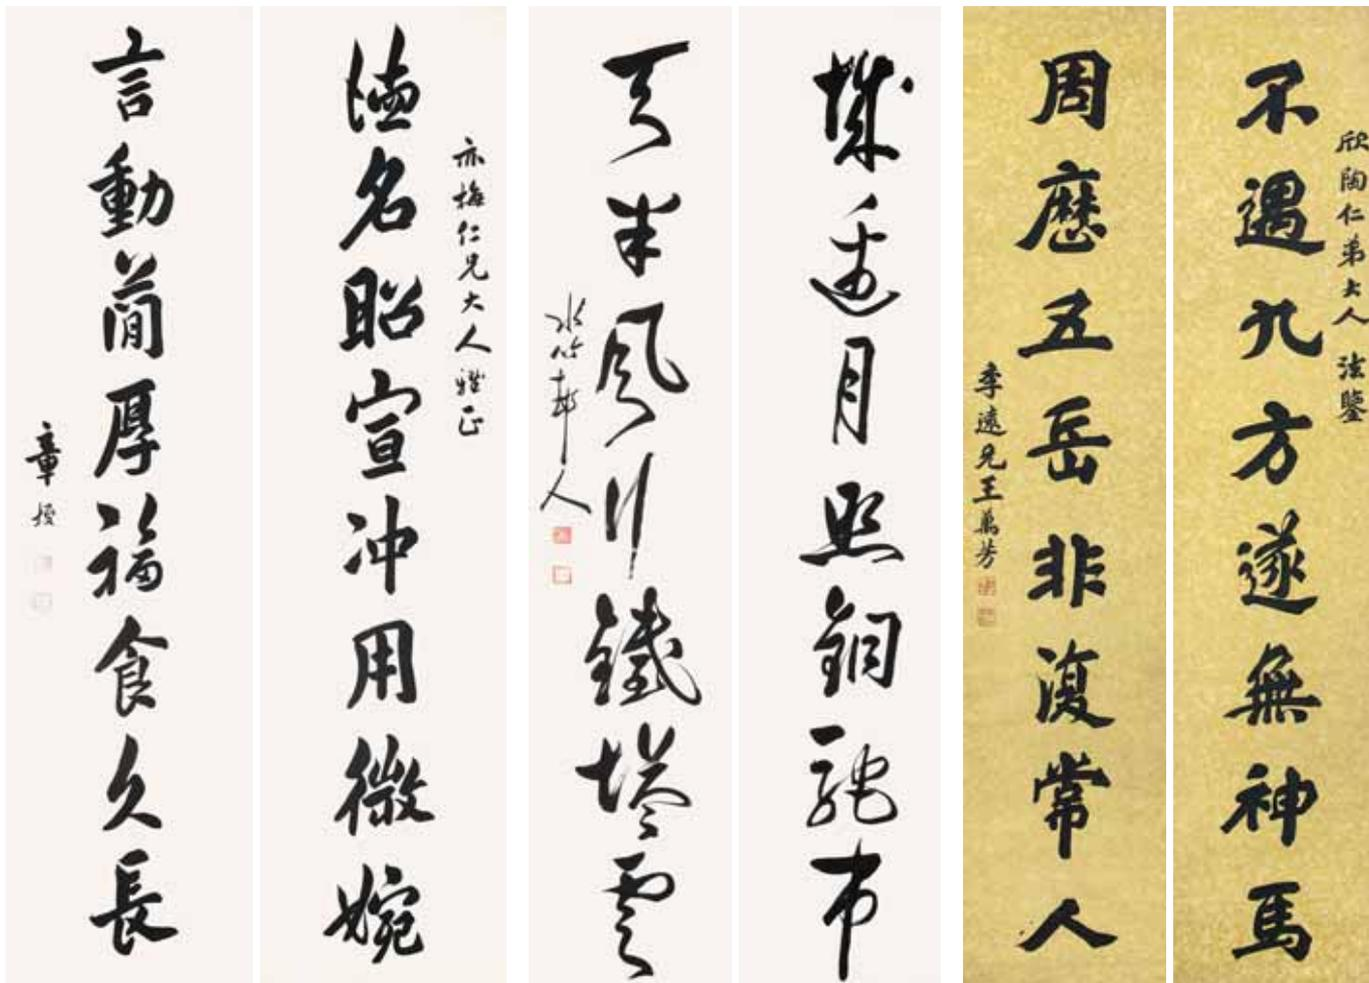 欣陶仁弟大人 法鑒
不遇九方遂無神馬
周歷五岳非復常人
季遠兄王萬芳
城邊月照銅駝市
天半風行鐵塔雲
水竹邨人
亦梅仁兄大人雅正
德名昭宣冲用微婉
言動簡厚福食久長
章梫